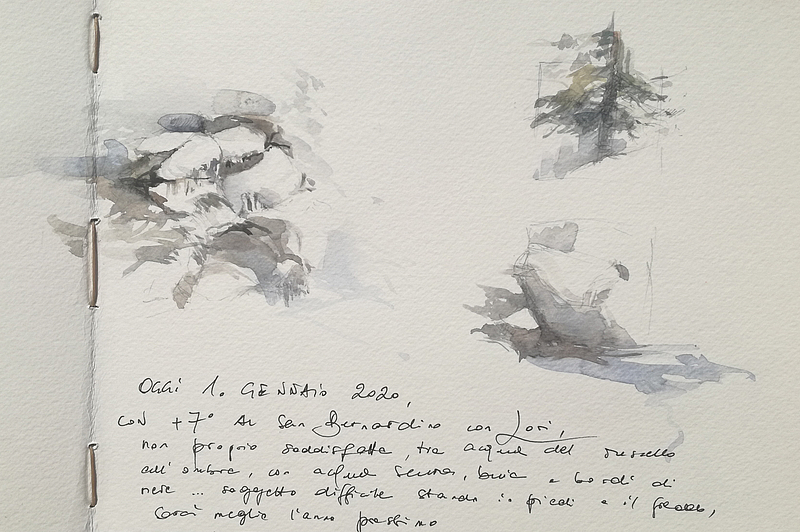 OGGI 1. GENNAIO 2020,
CON +7° AL San Bernardino con Lori,
non proprio soddisfatta, tra acqua del ruscello
all'ombra, con acqua scura, buia e bordi di
neve ... soggetto difficile stando in piedi e il freddo,
sarà meglio l'anno prossimo